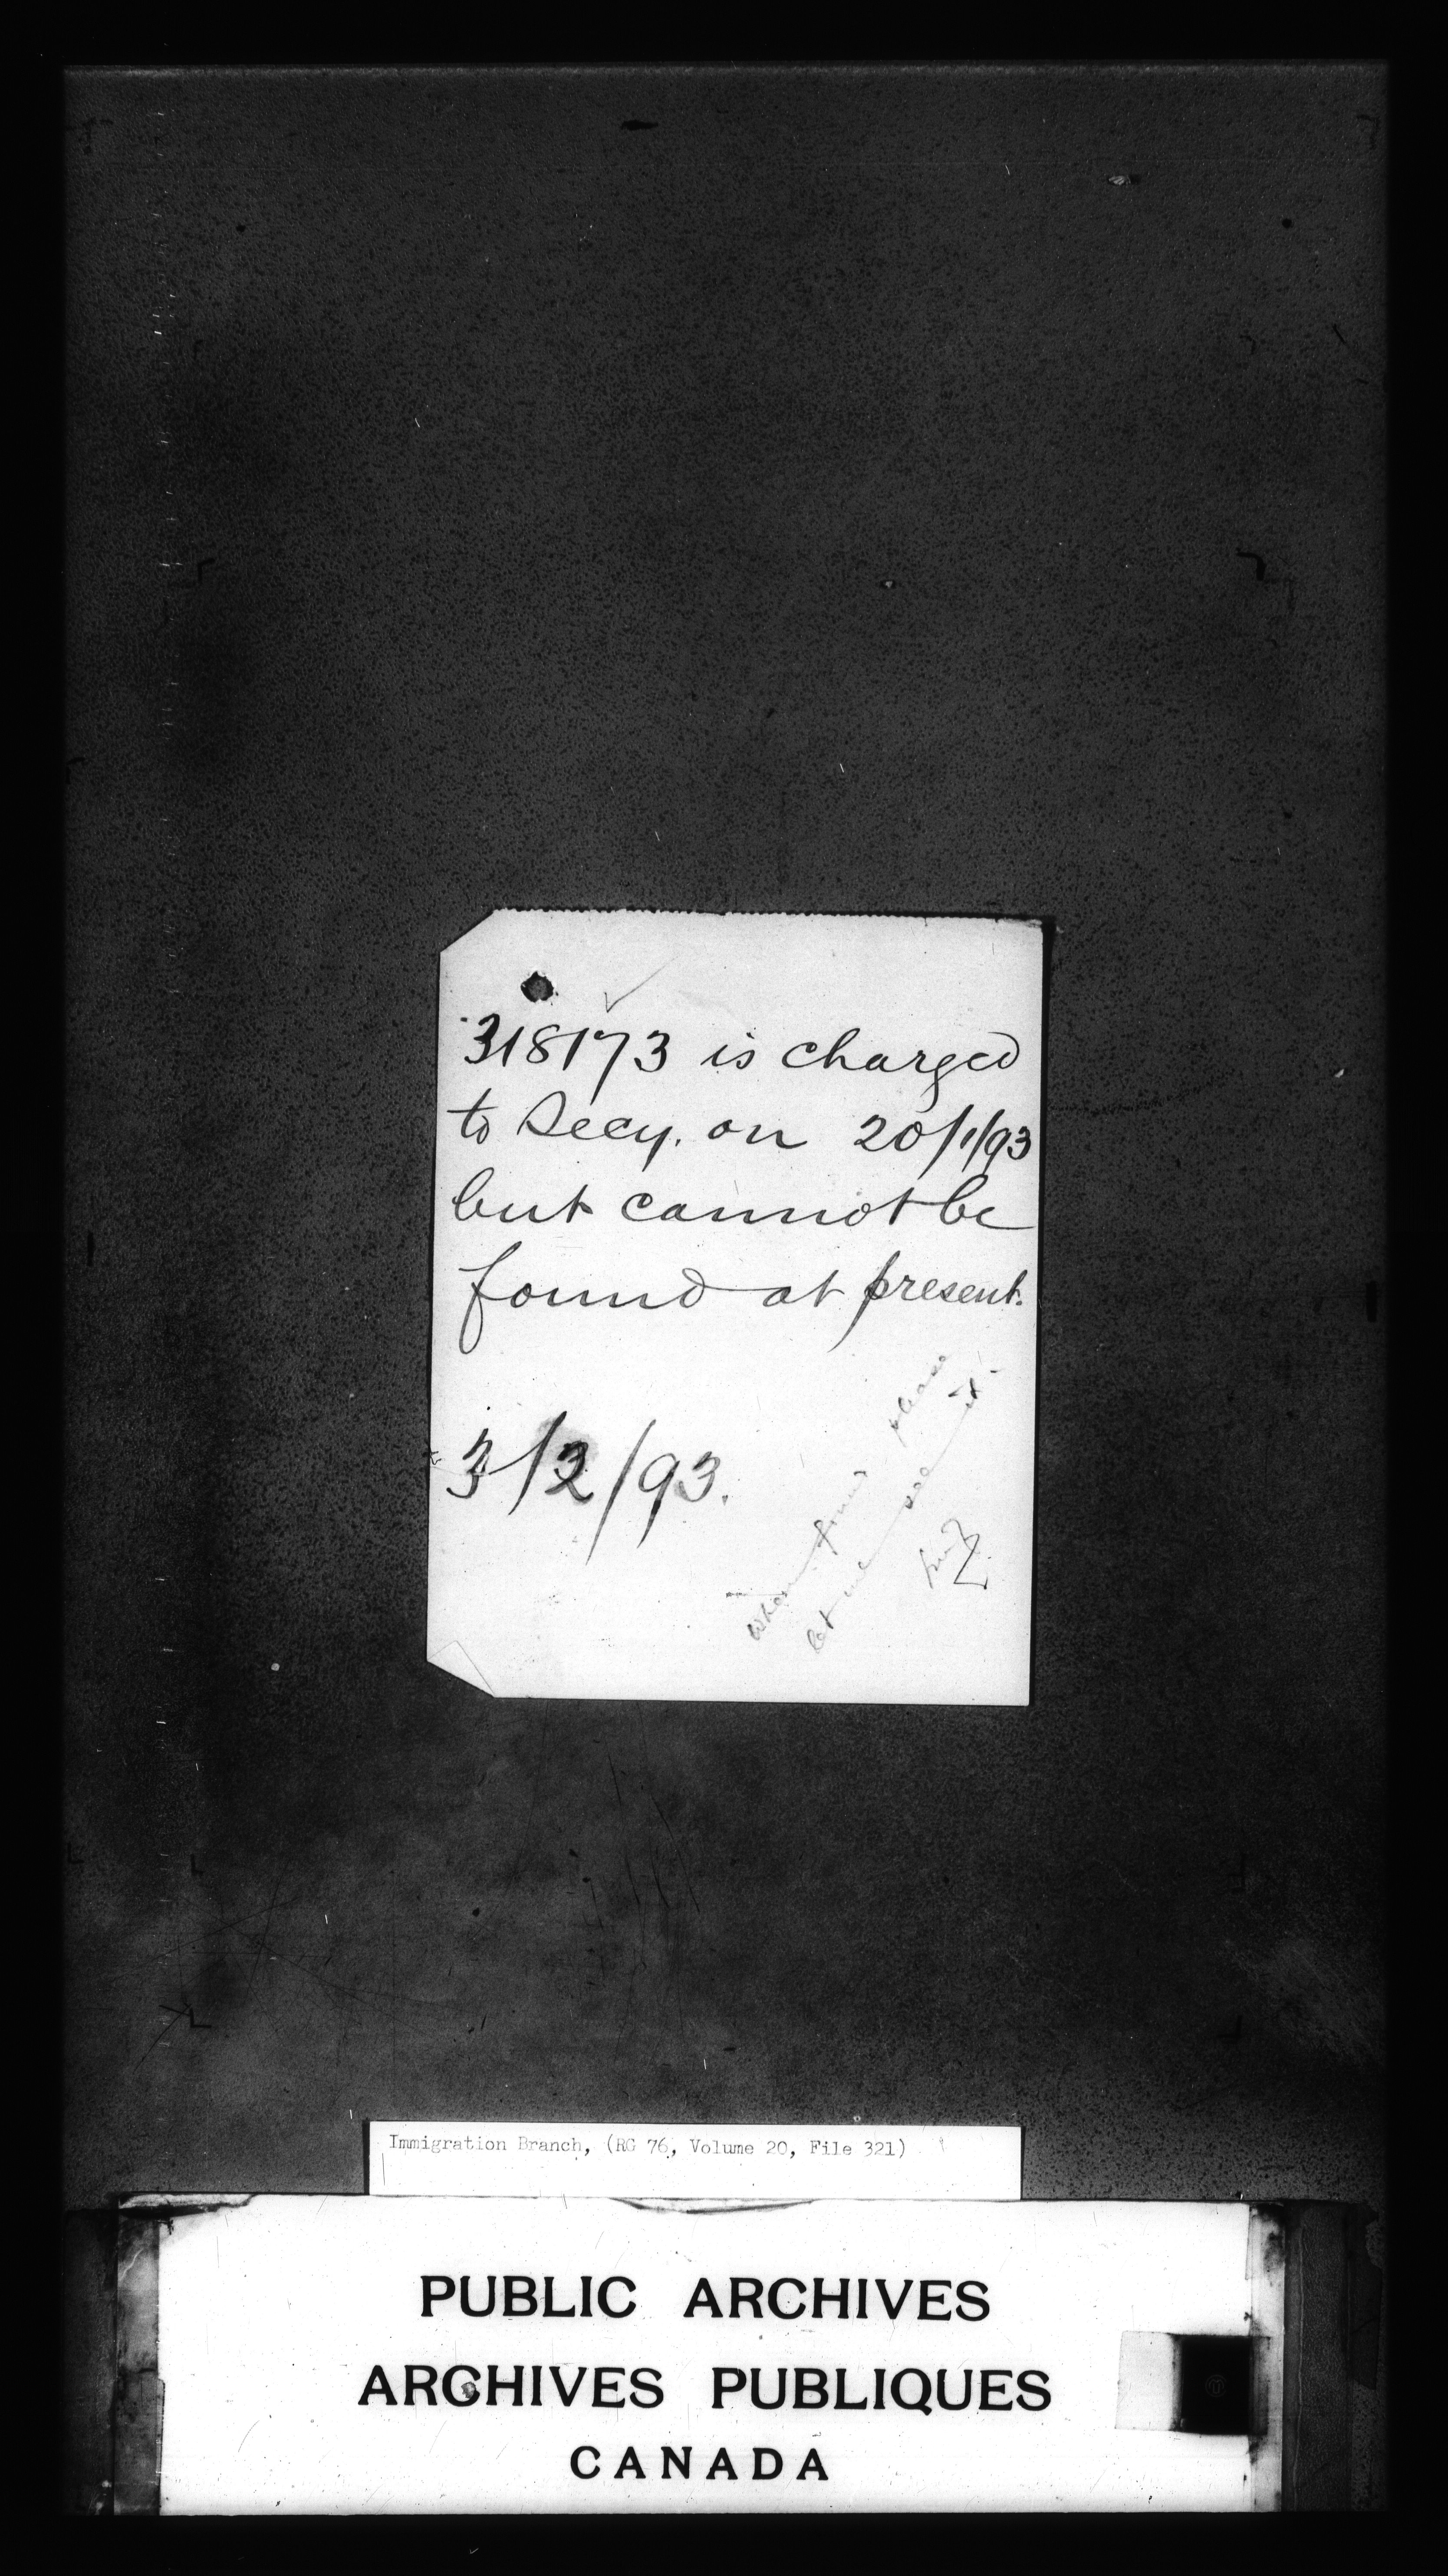 318173 is charged
to Secy. on 20/1/93
but cannot be
found at present.
3/2/93.
When found please
let me see it.
Immigration Branch, (RG 76, Volume 20, File 321)
PUBLIC ARCHIVES
ARCHIVES PUBLIQUES
CANADA